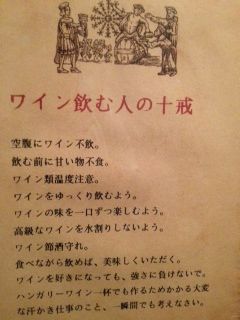 ワイン飲む人の十戒
空腹にワイン不飲。
飲む前に甘い物不食。
ワイン類温度注意。
ワインをゆっくり飲むよう。
ワインの味を一口ずつ楽しむよう。
高級なワインを水割りしないよう。
ワイン節酒守れ。
食べながら飲めば、美味しくいただく。
ワインを好きになっても、強さに負けないで。
ハンガリーワイン一杯でも作るためかかる大変
な汗かき仕事のこと、一瞬間でも考えなさい。